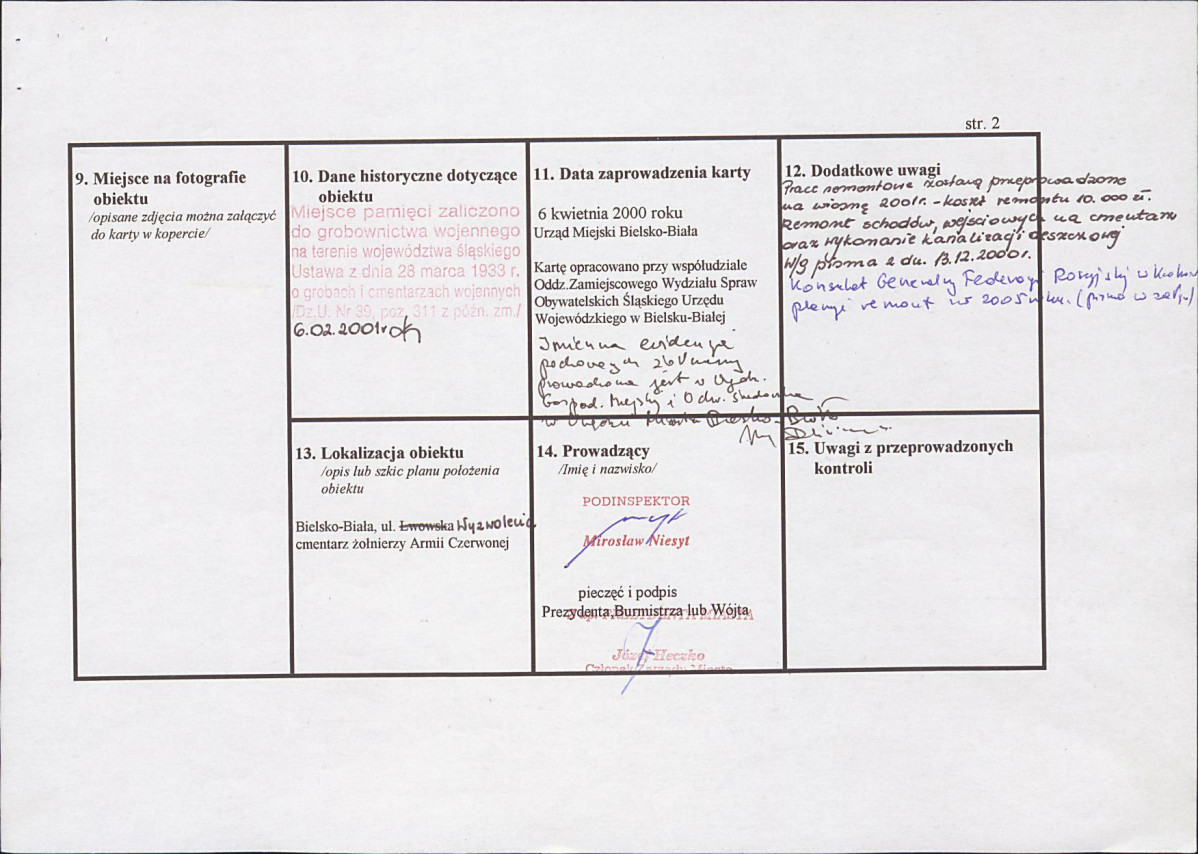 str. 2
9. Miejsce na fotografie
obiektu
/opisane zdjęcia można załączyć
do karty w kopercie/
10. Dane historyczne dotyczące
obiektu
Miejsce pamięci zaliczono
do grobownictwa wojennego
na terenie województwa śląskiego
Ustawa z dnia 28 marca 1933 r.
o grobach i cmentarzach wojennych
/Dz.U. Nr 39, poz. 311 z późn. zm./
6.02.2001r
11. Data zaprowadzenia karty
6 kwietnia 2000 roku
Urząd Miejski Bielsko-Biała
Kartę opracowano przy współudziale
Oddz.Zamiejscowego Wydziału Spraw
Obywatelskich Śląskiego Urzędu
Wojewódzkiego w Bielsku-Białej
Imienna ewidencja
pochowanych
prowadzona jest w Wydz.
Gospod. Miejskiej i Ochr. Środowiska
w Urzędzie Miasta Bielsko-Biała
12. Dodatkowe uwagi
Prace remontowe zostaną przeprowadzone
na wiosnę 2001r. - koszt remontu 10.000 zł.
Remont schodów wejściowych na cmentarz
oraz wykonanie kanalizacji deszczowej
W/g pisma z dn. 13.12.2000r.
Konsulat Generalny Federacji Rosyjskiej w Krakowie
planuje remont w 2005 roku. (pismo w zał.)
13. Lokalizacja obiektu
/opis lub szkic planu położenia
obiektu
Bielsko-Biała, ul. Lwowska Wyzwolenia
cmentarz żołnierzy Armii Czerwonej
14. Prowadzący
/Imię i nazwisko/
PODINSPEKTOR
Mirosław Niesyt
pieczęć i podpis
Prezydenta,Burmistrza lub Wójta
PREZYDENTA MIASTA
Józef Heczko
Członek Zarządu Miasta
15. Uwagi z przeprowadzonych
kontroli